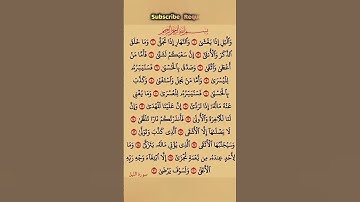 Subscribe Requ
بِسْمِ ٱللَّهِ ٱلرَّحْمَٰنِ ٱلرَّحِيمِ
وَٱلَّيْلِ إِذَا يَغْشَىٰ وَٱلنَّهَارِ إِذَا تَجَلَّىٰ وَمَا خَلَقَ
ٱلذَّكَرَ وَٱلْأُنثَىٰ إِنَّ سَعْيَكُمْ لَشَتَّىٰ فَأَمَّا مَنْ
أَعْطَىٰ وَٱتَّقَىٰ وَصَدَّقَ بِٱلْحُسْنَىٰ فَسَنُيَسِّرُهُۥ
لِلْيُسْرَىٰ وَأَمَّا مَنۢ بَخِلَ وَٱسْتَغْنَىٰ وَكَذَّبَ
بِٱلْحُسْنَىٰ فَسَنُيَسِّرُهُۥ لِلْعُسْرَىٰ وَمَا يُغْنِى
عَنْهُ مَالُهُۥٓ إِذَا تَرَدَّىٰٓ إِنَّ عَلَيْنَا لَلْهُدَىٰ وَإِنَّ
لَنَا لَلْـَٔاخِرَةَ وَٱلْأُولَىٰ فَأَنذَرْتُكُمْ نَارًا تَلَظَّىٰ
لَا يَصْلَىٰهَآ إِلَّا ٱلْأَشْقَى ٱلَّذِى كَذَّبَ وَتَوَلَّىٰ
وَسَيُجَنَّبُهَا ٱلْأَتْقَى ٱلَّذِى يُؤْتِى مَالَهُۥ يَتَزَكَّىٰ وَمَا
لِأَحَدٍ عِندَهُۥ مِن نِّعْمَةٍ تُجْزَىٰٓ إِلَّا ٱبْتِغَآءَ وَجْهِ رَبِّهِ
ٱلْأَعْلَىٰ وَلَسَوْفَ يَرْضَىٰ
سورة الليل